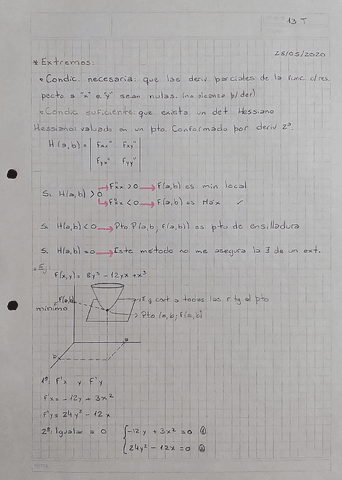 13 T
28/05/2020
* Extremos:
• Condic. necesaria: que las deriv parciales de la func. c/res
pecto a "x" e "y" sean nulas. (no alcanza p/der)
• Condic suficiente: que exista un det Hessiano
Hessiano: valuado en un pto. Conformado por deriv 2º.
H(a,b) = | Fxx" Fxy" |
| Fyx" Fyy" |
Si H(a,b) > 0 → Fxx > 0 → F(a,b) es min local
→ Fxx < 0 → F(a,b) es Máx
Si H(a,b) < 0 → Pto P(a,b, F(a,b)) es pto de ensilladura
Si H(a,b) = 0 → Este método no me asegura la ∃ de un ext.
• Ej
F(x,y) = 8y³ - 12yx + x³
F(a,b)
a todas las r tg al pto
mínimo
Pto (a, b, F(a,b))
1º: F'x y F'y
F'x = -12y + 3x²
F'y = 24y² - 12x
2º: Igualar = 0 { -12y + 3x² = 0 ①
24y² - 12x = 0 ②